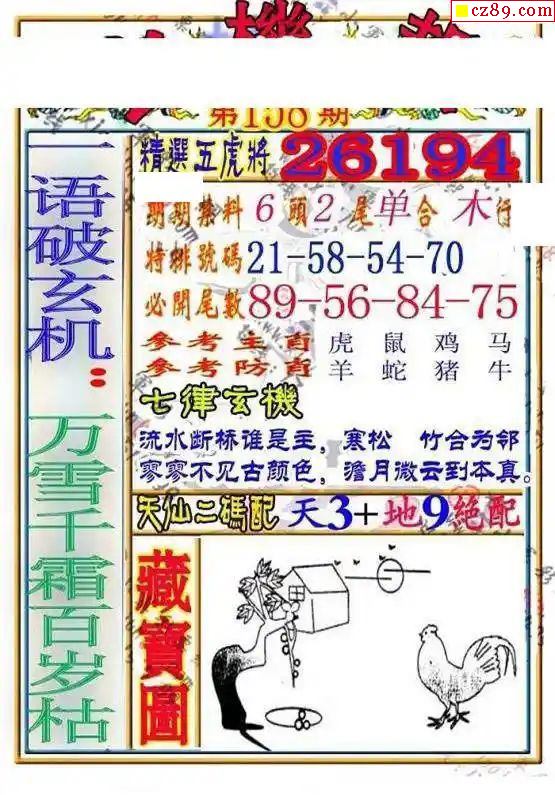 cz89.com
機
第158期
一语破玄机：万雪千霜百岁枯
精選五虎将 26194
期期禁料 6頭2尾单合木行
特排號碼 21-58-54-70
必開尾數 89-56-84-75
參考主肖 虎 鼠 鸡 马
參考防肖 羊 蛇 猪 牛
七律玄機
流水断桥谁是主，寒松 竹合为邻
寥寥不见古颜色，澹月微云到本真。
天仙二碼配 天3+地9絕配
藏寶圖